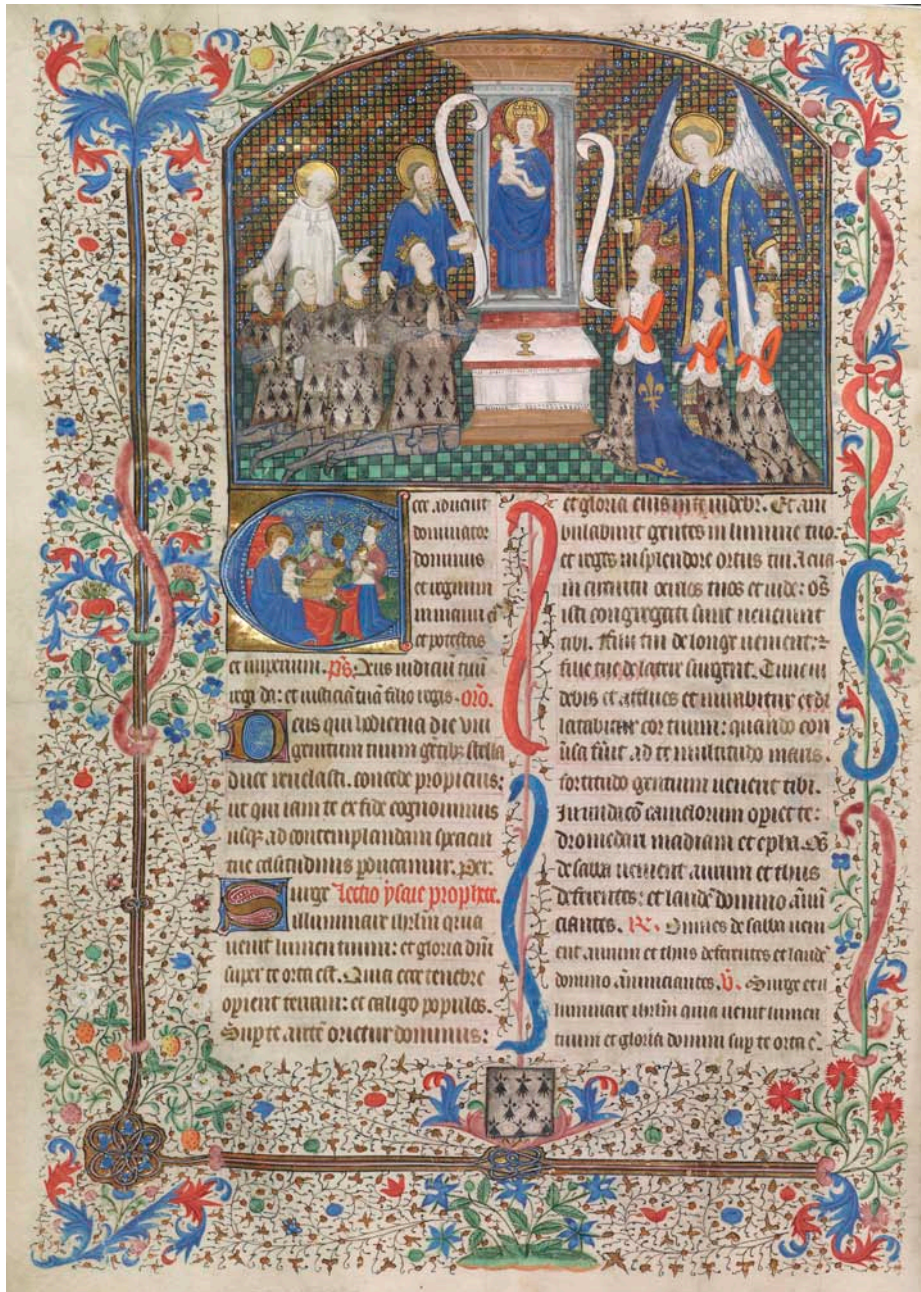 Ecce aduenit
dominator
dominus
et regnum
in manu ei
et potestas
et imperium. p̄s. Deus iudiciū tuū
regi da: et iusticiā tuā filio regis. or̄o.
Deus qui hodierna die vni
genitum tuum gētibꝫ stella
duce reuelasti. concede propicius:
ut qui iam te ex fide cognouimus
usqꝫ ad contemplandam speciem
tue celsitudinis ꝑducamur. Per.
Surge Lectio ysaie prophete.
illuminare ihrlm̄ quia
uenit lumen tuum: et gloria dn̄i
super te orta est. Quia ecce tenebre
operient terram: et caligo populos.
Suꝑ te autē orietur dominus:
et gloria eius in te uidebr̄. Et am
bulabunt gentes in lumine tuo:
et reges in splendore ortus tui. Leua
in circuitu oculos tuos et uide: om̄s
isti congregati sunt uenerunt
tibi. Filii tui de longe uenient: ⁊
filie tue de latere surgent. Tunc ui
debis et afflues et mirabitur et di
latabitur cor tuum: quando con
ūsa fūit ad te multitudo maris.
fortitudo gentium uenerit tibi.
Inundacō camelorum opiet te:
dromedarii madian et epha. Om̄s
de saba uenient aurum et thus
deferentes: et laudē domino annū
ciantes. R̄. Omnes de saba ueni
ent aurum et thus deferentes et laudē
domino annunciantes. v̄. Surge et il
luminare ihrlm̄ quia uenit lumen
tuum et gloria domini suꝑ te orta ē.